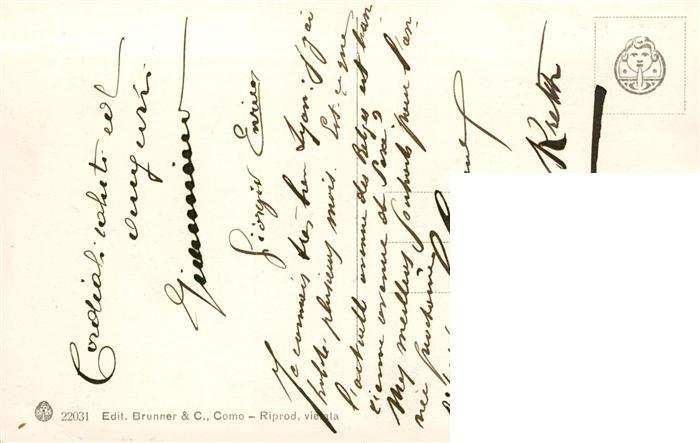 Cordiali saluti ed
auguri
Giannino
Giorgio Enrico
Je connais très bien Lyon; j'y ai
habité plusieurs mois. Est-ce que
l'actuelle avenue des Belges est l'an-
cienne avenue de Saxe?
Mes meilleurs souhaits pour l'an-
née prochaine
22031 Edit. Brunner & C., Como – Riprod. vietata